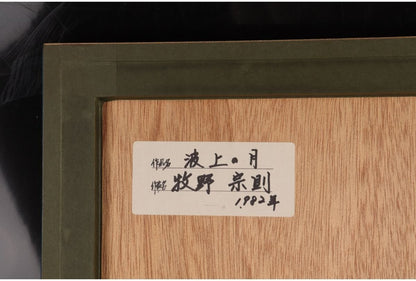 作品名 波上の月
作者名 牧野 宗則
1982年